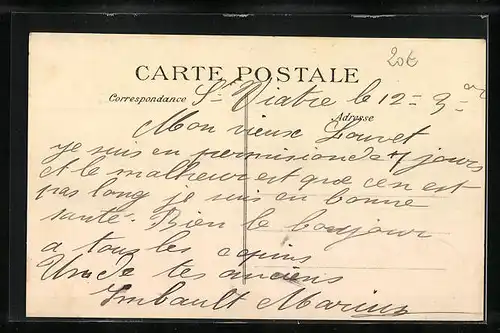 20€
CARTE POSTALE
Correspondance St Viatre le 12 = 3 =
Adresse
Mon vieux Louvet
je suis en permision de 7 jours
et le malheur est que cen est
pas long je suis en bonne
santé. Bien le bonjour
a tous les copins
Un de tes anciens
Imbault Marius